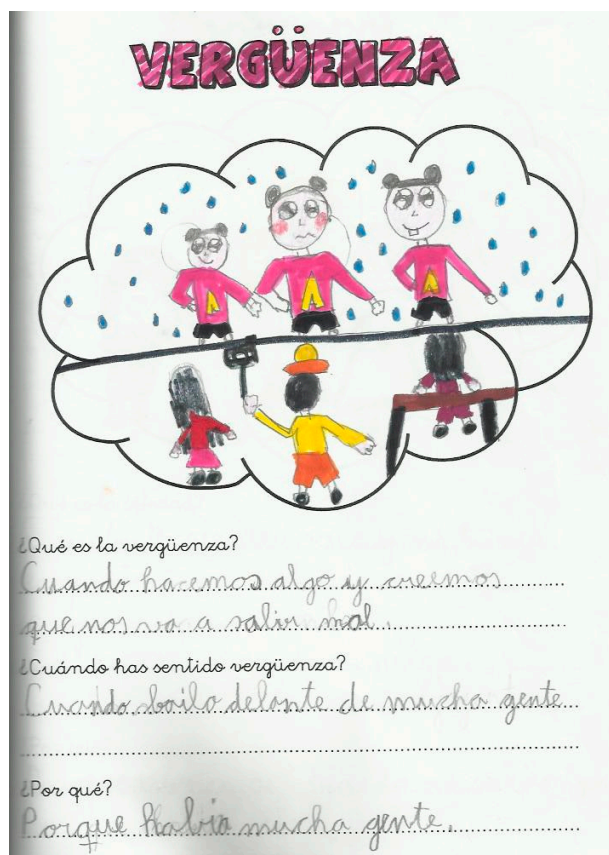 VERGÜENZA
A
A
A
¿Qué es la vergüenza?
Cuando hacemos algo y creemos
que nos va a salir mal.
¿Cuándo has sentido vergüenza?
Cuando bailo delante de mucha gente
¿Por qué?
Porque había mucha gente.